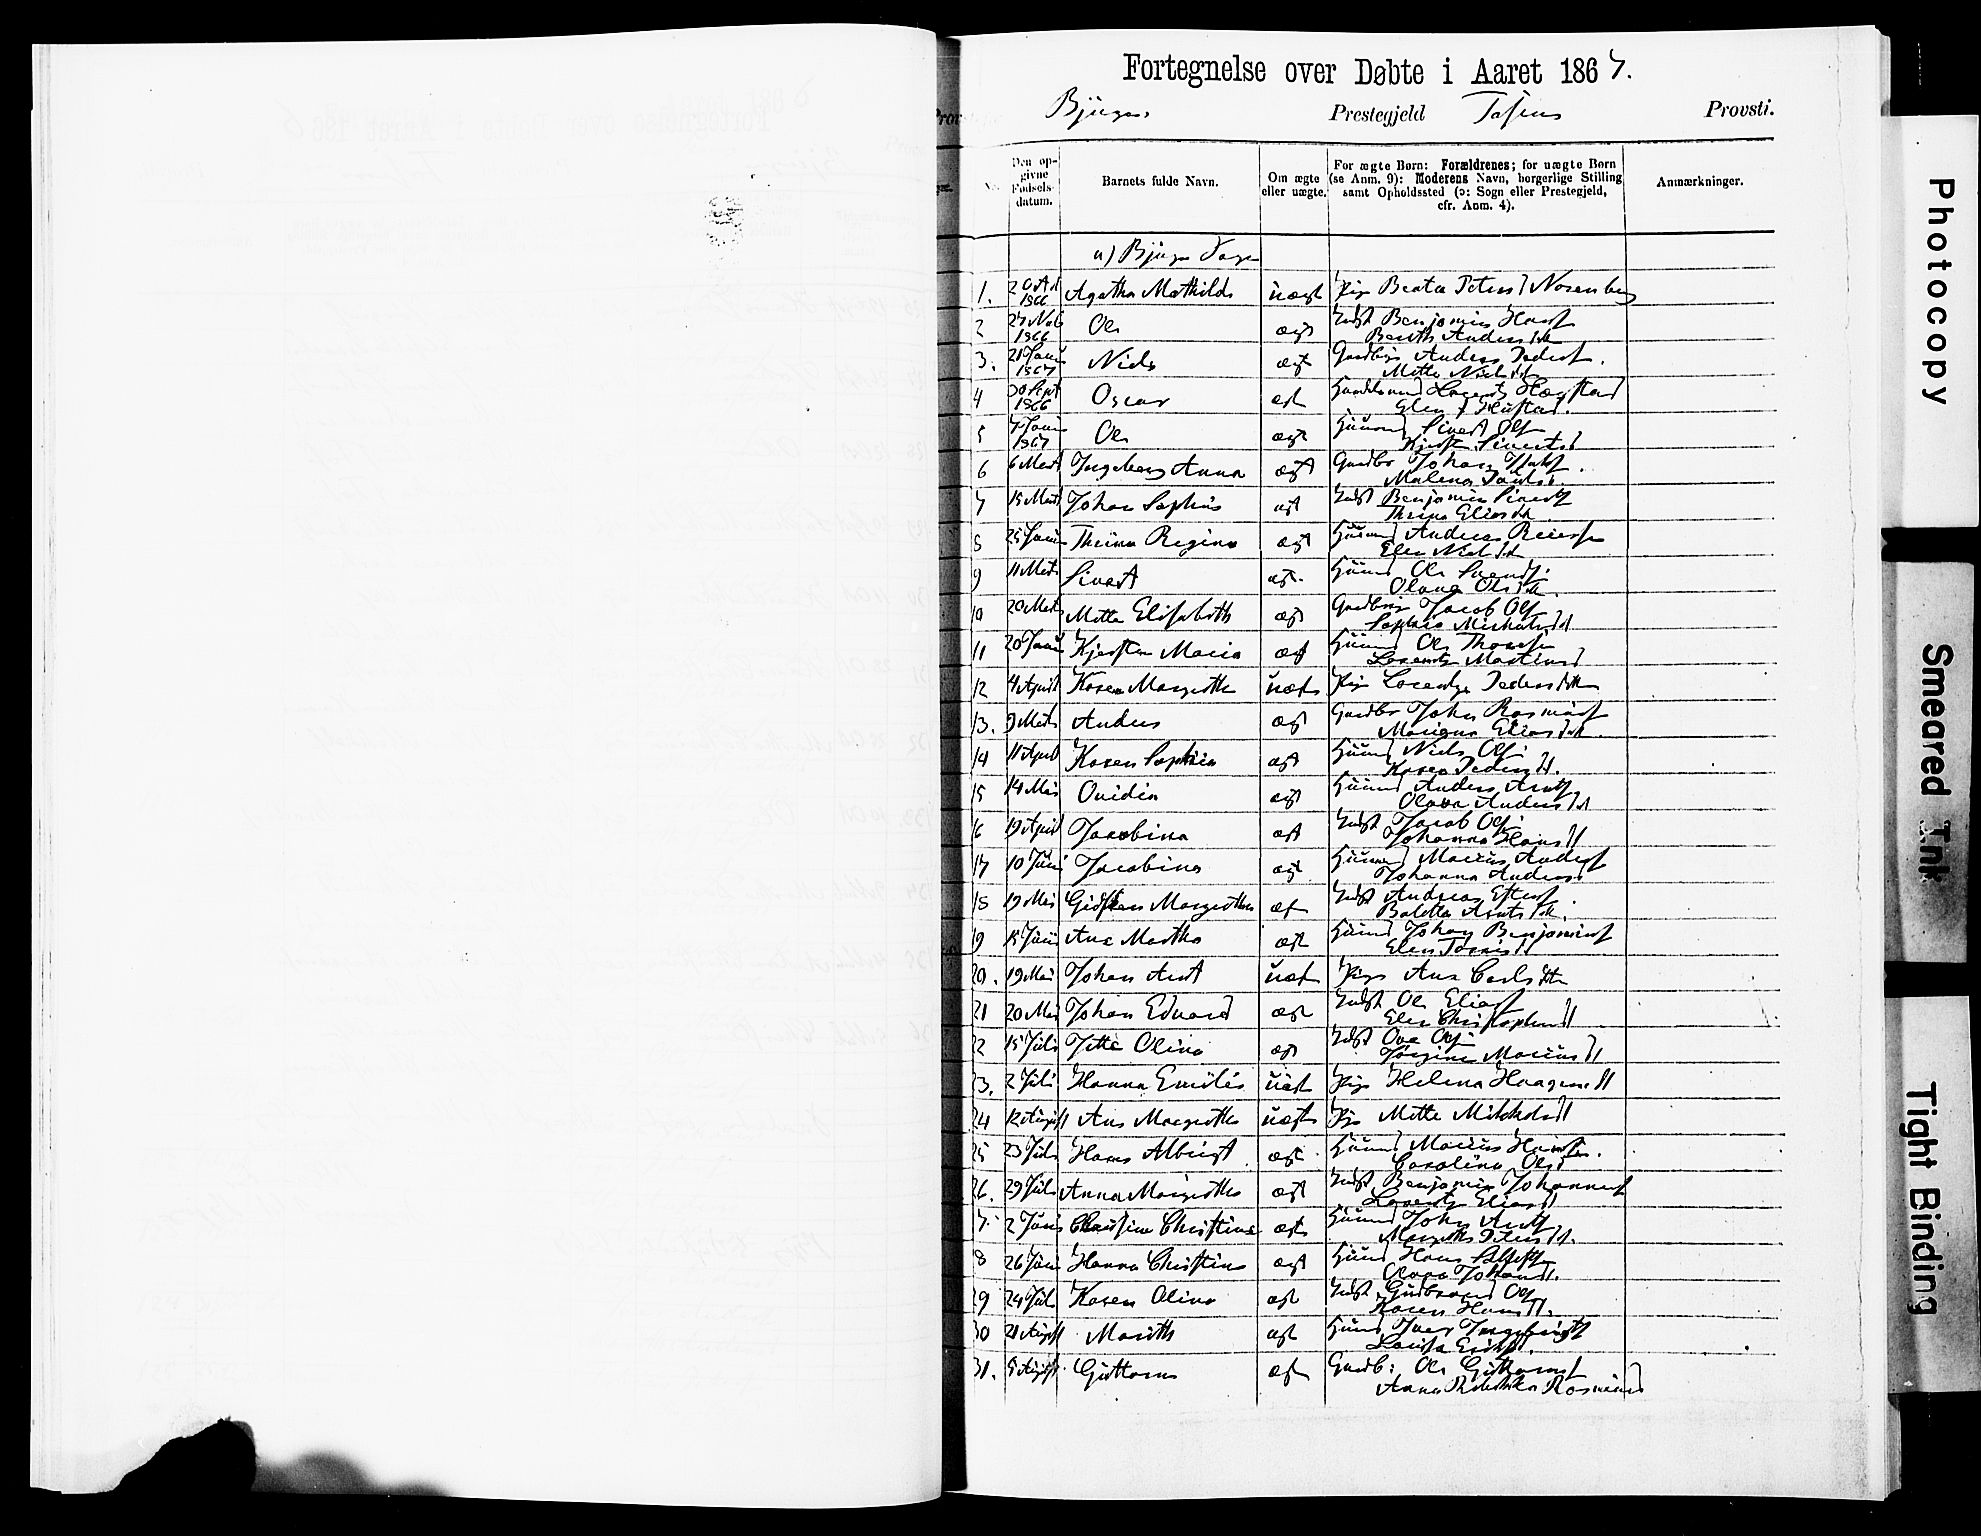 Fortegnelse over Døbte i Aaret 1867.
Bjugn Prestegjeld Fosens Provsti.
No. Den opgivne Fødselsdatum. Barnets fulde Navn. Om ægte eller uægte. For ægte Børn: Forældrenes; for uægte Børn (se Anm. 9): Moderens Navn, borgerlige Stilling samt Opholdssted (ɔ: Sogn eller Prestegjeld, cfr. Anm. 4). Anmærkninger.
a) Bjugn Sogn
1. 2 Oct 1866 Agatha Mathilde uægt Pige Beata Petersd Rosenberg
2 27 Nob 1866 Ole ægt Indst Benjamin Hansf
Bereth Andersdtr
3. 21 Janu 1867 Niels ægt Gaardbrg Anders Pedersf.
Mette Nielsdt
4 30 Sept 1866 Oscar ægt Handelsmand Lorentz Høgstad
Elen f Hustad.
5 7 Janu 1867 Ole ægt Huusmd Sivert Olsf
Kjersten Sivertsd
6 6 Marts Ingeborg Anna ægt Gaardbr Johan
Malena
7 15 Marts Johan Sophus ægt Indst Benjamin Sivertsf
Eliasdtr
8 25 Janu Thrina Regina ægt Huusmd Andreas Reiersen
Elen Nielsdt
9 11 Marts Sivert ægt. Huusmd Ole Svendsf.
Olava Olsdtr.
10 20 Marts Mette Elisabeth ægt Gaardbrg Jacob Olsf
Sophia Michalsdt
11 20 Janu Kjersten Maria ægt Huusmd Ole
Lorentze Martinusd
12 4 April Karen Margrethe uægte Pige Lorentze Pedersdtr
13. 9 Marts Anders ægt Gaardbr John Rasmusf
Mariana Eliasdtr.
14 11 April Karen Sophia ægt Huusmd Niels Olsf
Karen Pedersdt.
15 14 Mai Ovidia ægt Huusmd Anders Arntsf
Olava Andersdt
16 19 April Jacobina ægt Indst Jacob Olsf
Johanna Hansdt
17 10 Juni Jacobina ægt Huusmd Marius Andersf
Johanna Andersd
18 19 Mai Gidsken Margrethe ægt Indst Andreas
Baletta Arntsdtr.
19 15 Juni Ane Martha ægt Huusmd Johan Benjaminsf
Elen
20. 19 Mai Johan Arnt uægt Pige Ane Carlsdtr
21 20 Mai Johan Edvard ægt Indst Ole Eliasf
Elen Christophersdt
22 15 Juli Jette Olina ægt Indst Ove Olsf
Jørgine Mariusdt
23. 2 Juli Hanna Emilie uægt Pige Helena Haagensdt
24 12 August Ane Margrethe uægte Pige Mette Mikkelsdt
25 23 Juli Hans Albrigt ægt Huusmd Marius.
Caroline Olsd
26. 29 Juli Anna Margrethe ægt Indst Benjamin Johannesf
Lorentze Eliasd
7. 2 Juni Christine ægte Huusmd John Arntsf
Margrethe Petersdt.
8 26 Juni Hanna Christine ægt Huusmd Hans
Olava Johansdt.
29 24 Juli Karen Olina ægt Indst Gudbrand Olsf
Karen Hansdt.
30 21 August Marith ægt Huusmd Iver Ingebrigtsf
Lovisa
31. 5 August Guttorm ægt Gaardb: Ole Guttormsf
Anna Rasmusd
Photocopy
Smeared Ink
Tight Binding